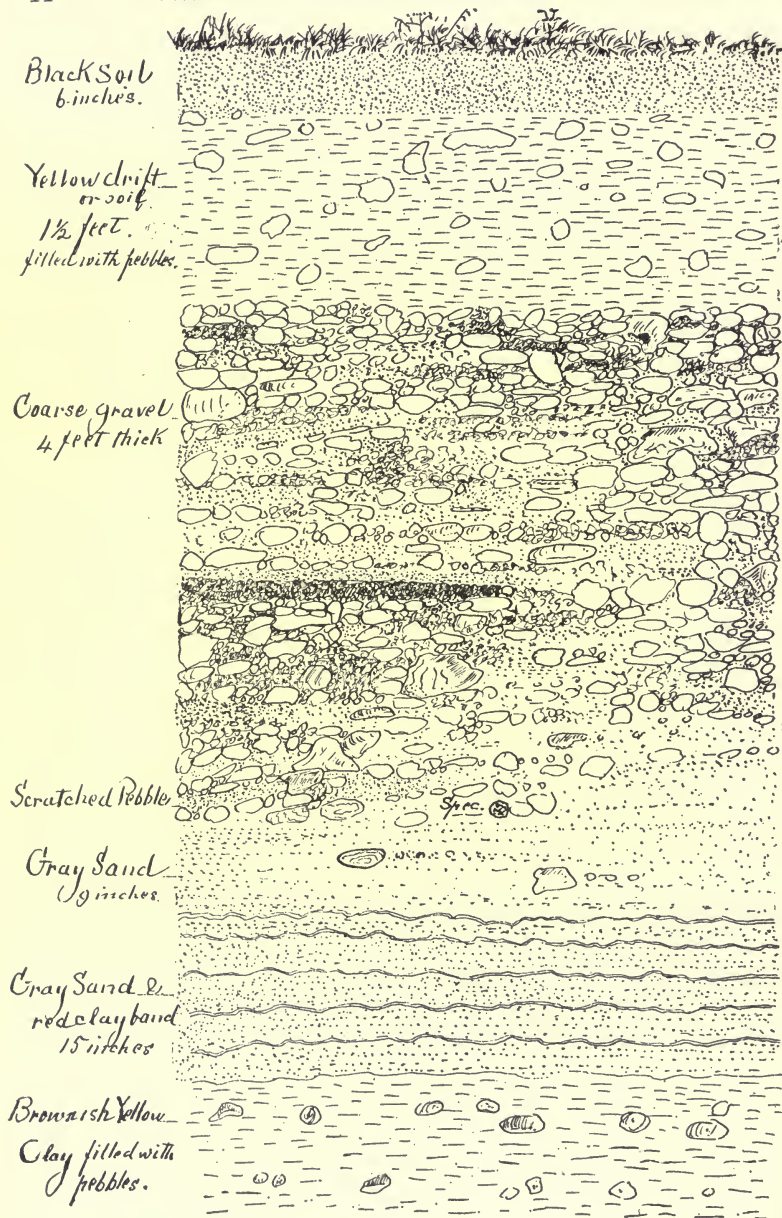 Black Soil
6 inches.
Yellow drift
or soil
1½ feet.
filled with pebbles.
Coarse gravel
4 feet thick
Scratched Pebbles
Spec.
Gray Sand
9 inches
Gray Sand &
red clay band
15 inches
Brownish Yellow
Clay filled with
pebbles.